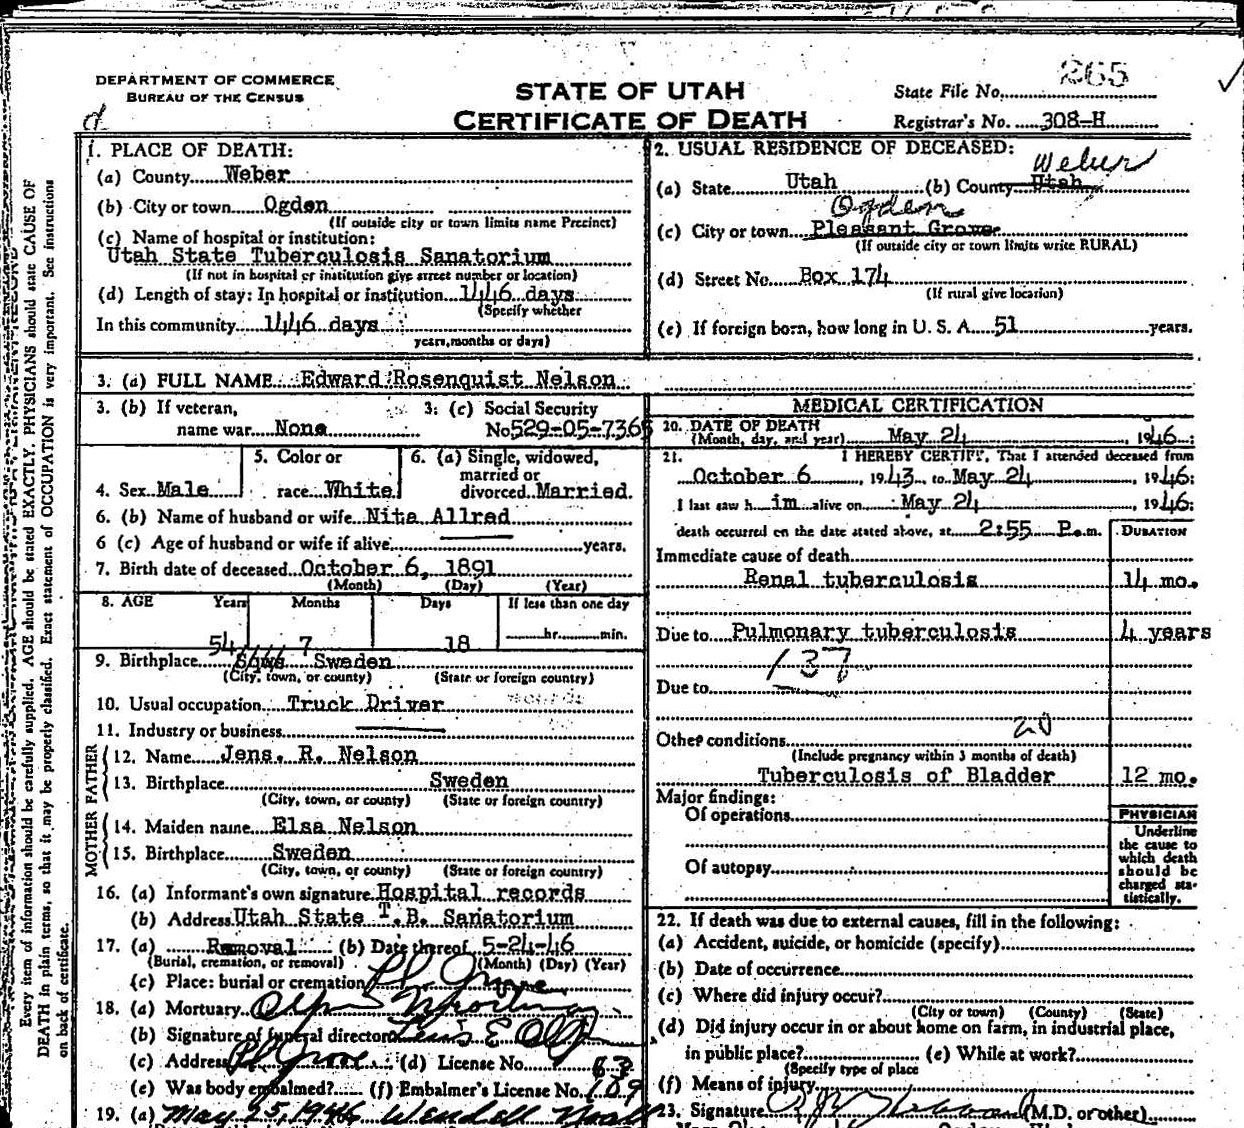 265
DEPARTMENT OF COMMERCE
BUREAU OF THE CENSUS
STATE OF UTAH
CERTIFICATE OF DEATH
State File No.
Registrar's No. 308-H
d
1. PLACE OF DEATH:
(a) County Weber
(b) City or town Ogden
(If outside city or town limits name Precinct)
(c) Name of hospital or institution:
Utah State Tuberculosis Sanatorium
(If not in hospital or institution give street number or location)
(d) Length of stay: In hospital or institution 1446 days
(Specify whether
In this community 1446 days
years, months or days)
2. USUAL RESIDENCE OF DECEASED:
Weber
(a) State Utah (b) County Utah
Ogden
(c) City or town Pleasant Grove
(If outside city or town limits write RURAL)
(d) Street No. Box 174
(If rural give location)
(e) If foreign born, how long in U. S. A. 51 years.
3. (a) FULL NAME Edward Rosenquist Nelson
3. (b) If veteran,
name war None
3. (c) Social Security
No 529-05-7365
4. Sex Male
5. Color or
race White
6. (a) Single, widowed,
married or
divorced Married
6. (b) Name of husband or wife Nita Allred
6 (c) Age of husband or wife if alive years.
7. Birth date of deceased October 6, 1891
(Month) (Day) (Year)
8. AGE Years Months Days If less than one day
54 7 18 hr. min.
9. Birthplace Sweden
(City, town, or county) (State or foreign country)
10. Usual occupation Truck Driver
11. Industry or business
FATHER
12. Name Jens. R. Nelson
13. Birthplace Sweden
(City, town, or county) (State or foreign country)
MOTHER
14. Maiden name Elsa Nelson
15. Birthplace Sweden
(City, town, or county) (State or foreign country)
16. (a) Informant's own signature Hospital records
(b) Address Utah State T.B. Sanatorium
17. (a) Removal (b) Date thereof 5-24-46
(Burial, cremation, or removal) (Month) (Day) (Year)
(c) Place: burial or cremation Pl Grove
18. (a) Mortuary
(b) Signature of funeral director
(c) Address Pl Grove (d) License No. 63
(e) Was body embalmed? (f) Embalmer's License No. 109
19. (a) May 25, 1946 Wendell
MEDICAL CERTIFICATION
20. DATE OF DEATH
(Month, day, and year) May 24, 1946:
21. I HEREBY CERTIFY, That I attended deceased from
October 6, 1943, to May 24, 1946:
I last saw h im alive on May 24, 1946:
death occurred on the date stated above, at 2:55 P.m.
DURATION
Immediate cause of death
Renal tuberculosis 14 mo.
Due to Pulmonary tuberculosis 4 years
137
Due to
20
Other conditions
(Include pregnancy within 3 months of death)
Tuberculosis of Bladder 12 mo.
Major findings:
Of operations
Of autopsy
PHYSICIAN
Underline
the cause to
which death
should be
charged sta-
tistically.
22. If death was due to external causes, fill in the following:
(a) Accident, suicide, or homicide (specify)
(b) Date of occurrence
(c) Where did injury occur?
(City or town) (County) (State)
(d) Did injury occur in or about home on farm, in industrial place,
in public place? (e) While at work?
(Specify type of place
(f) Means of injury
23. Signature (M.D. or other)
Every item of information should be carefully supplied. AGE should be stated EXACTLY. PHYSICIANS should state CAUSE OF
DEATH in plain terms, so that it may be properly classified. Exact statement of OCCUPATION is very important. See instructions
on back of certificate.